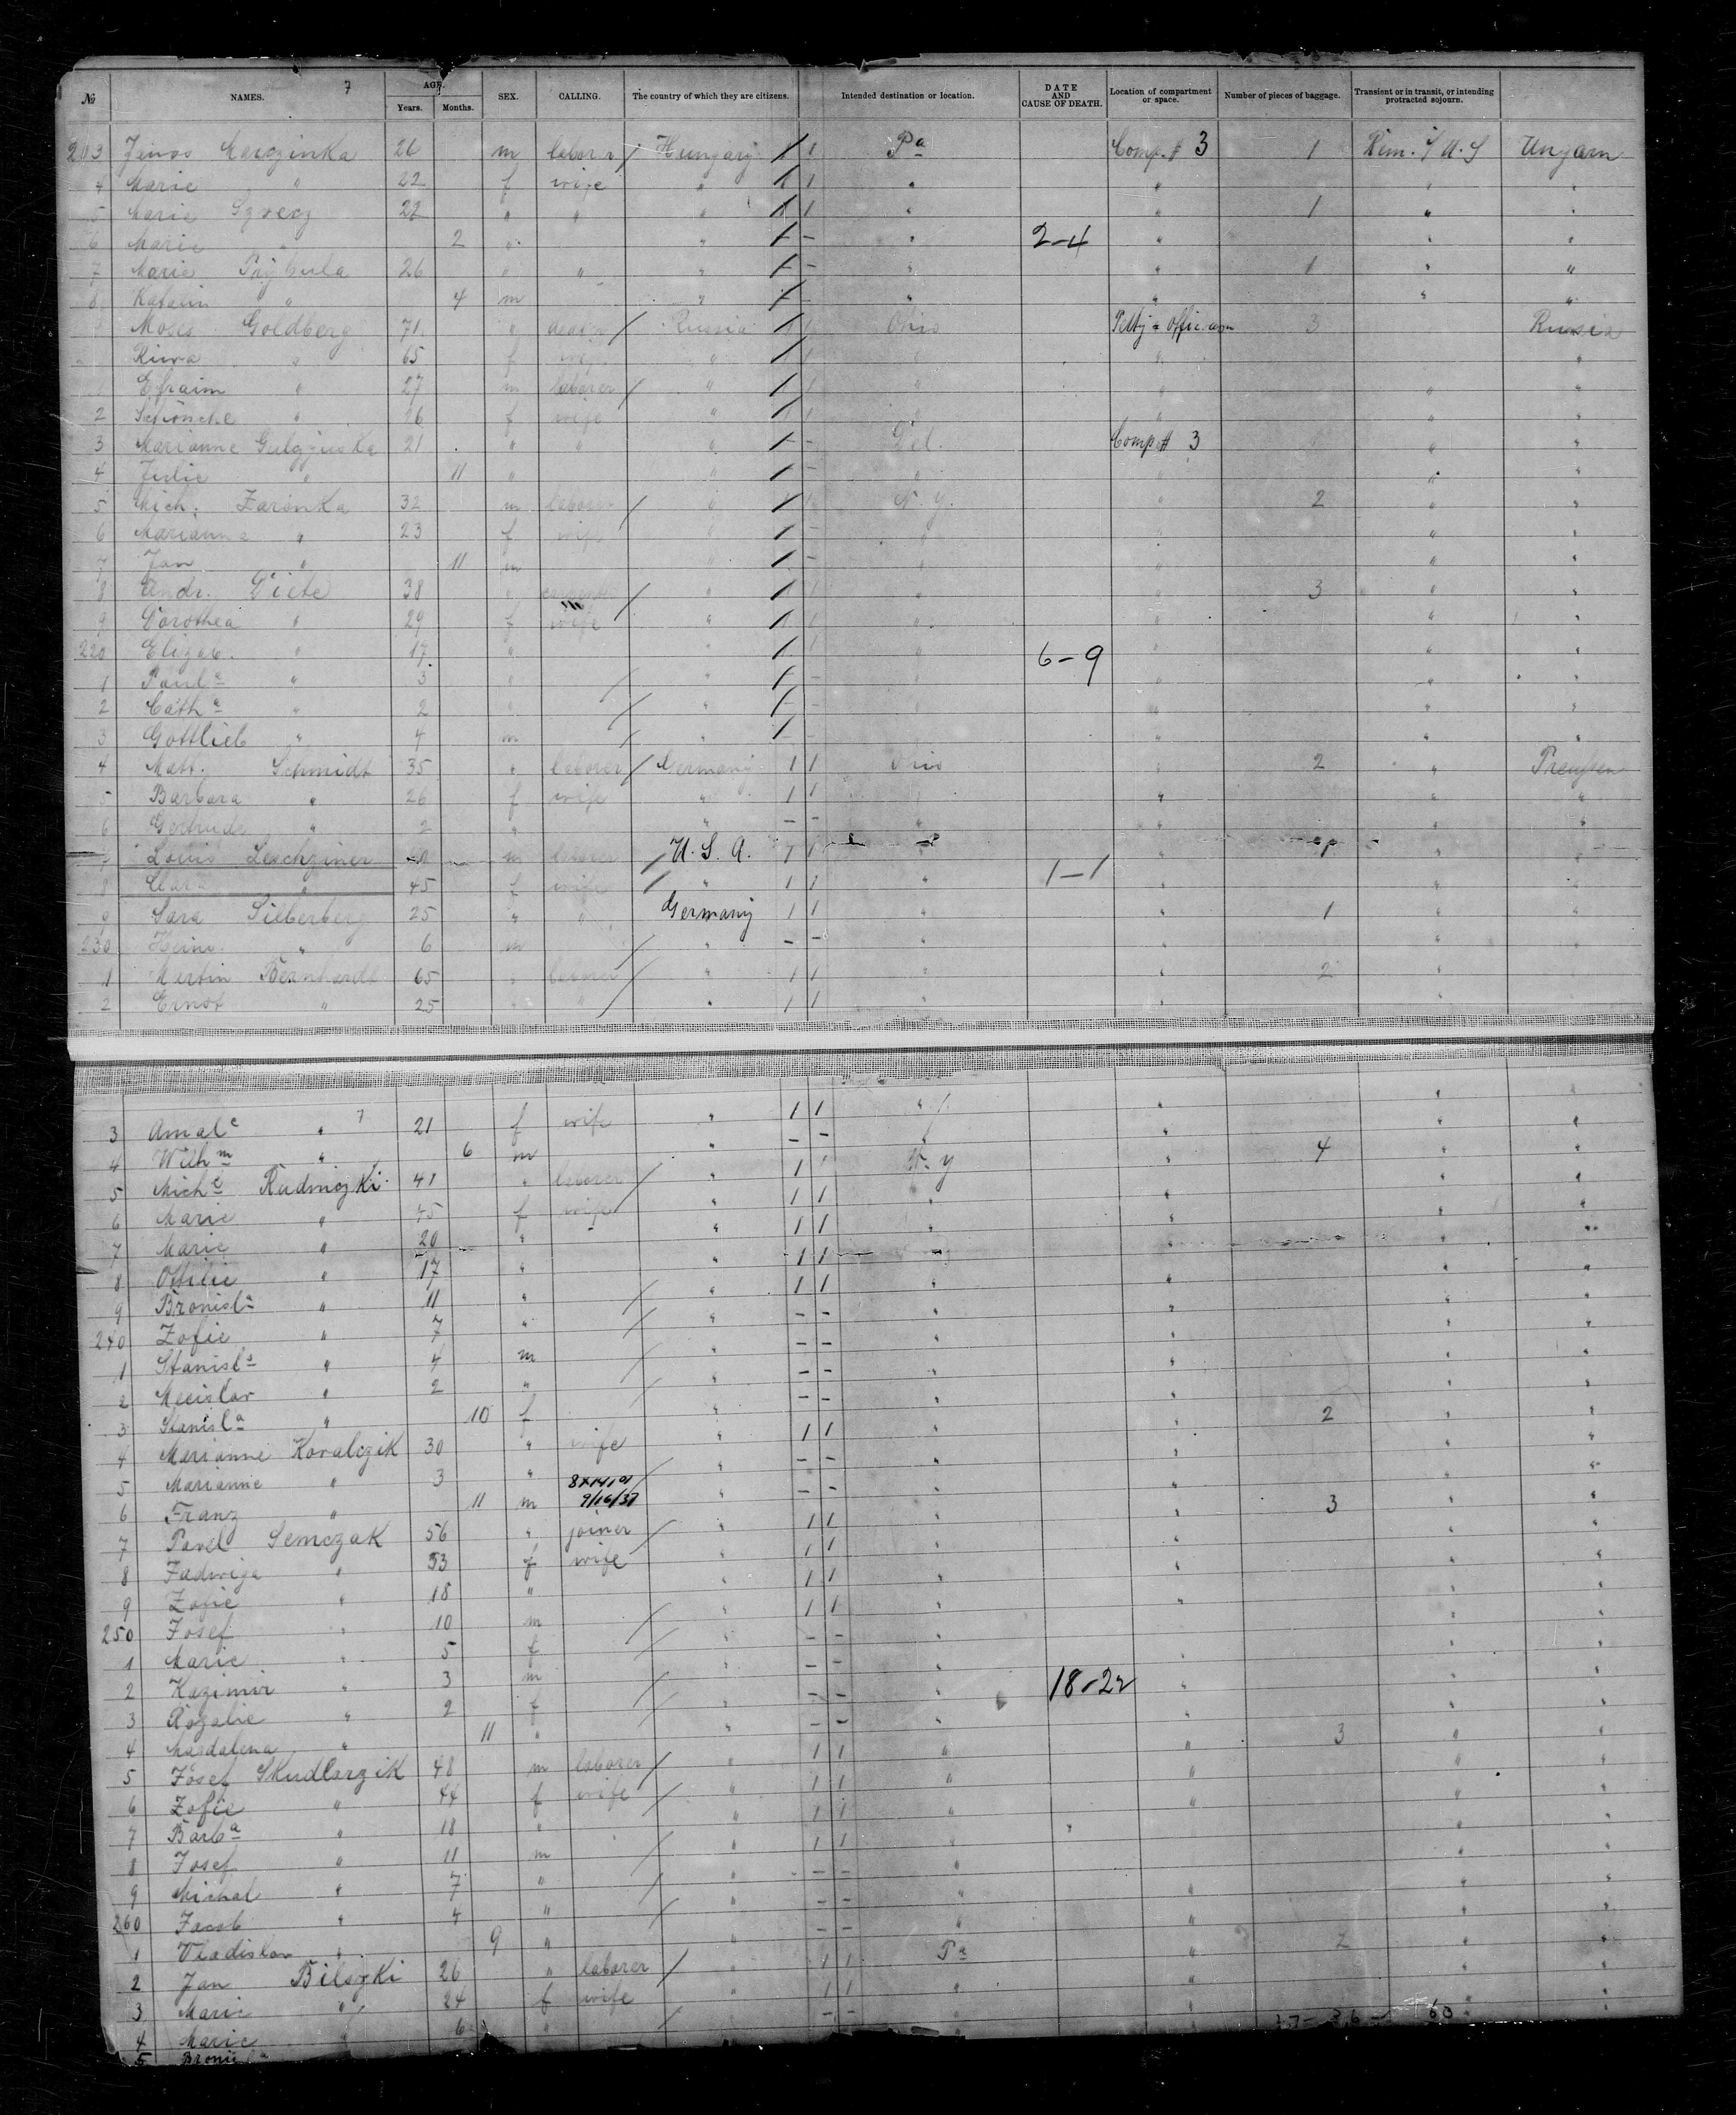 7
№ NAMES. AGE. Years. Months. SEX. CALLING. The country of which they are citizens. Intended destination or location. DATE AND CAUSE OF DEATH. Location of compartment or space. Number of pieces of baggage. Transient or in transit, or intending protracted sojourn.
203 26 m laborer / Hungary 1 1 Pa Comp. # 3 1 U.S Ungarn
4 Marie " 22 f wife " 1 1 " " " "
5 Marie 22 " " " 1 1 " " 1 " "
6 Marie " 2 " " 1 - " 2-4 " " "
7 Marie Prybula 26 " " " 1 - " " 1 " "
8 Katalin " 4 m " 1 - " " " "
Moses Goldberg 71 " / Russia 1 1 Ohio 3 Russia
Riwa " 65 f wife " 1 1 " " "
1 Efraim " 27 m laborer / " 1 1 " " " "
2 " 26 f wife " 1 1 " " " "
3 Marianne 21 " " " 1 - Comp # 3 " "
4 Julie " 11 " " 1 - " " " "
5 Mich. Zarinka 32 m laborer / " 1 N. Y. " 2 " "
6 Marianna " 23 f wife " 1 - " " " "
7 Jan " 11 m " 1 - " " " "
8 Andr. 38 " / " 1 1 " " 3 " "
9 Dorothea " 29 f wife " 1 1 " " " "
220 Elizab. " 17 " " 1 1 " 6-9 " " "
1 Paula " 3 " / " 1 - " " " "
2 Catha " 2 " / " 1 - " " " "
3 Gottlieb " 4 m / " 1 - " " " "
4 Matt. Schmidt 35 " laborer / Germany 1 1 Ohio " 2 " Preußen
5 Barbara " 26 f wife " 1 1 " " " "
6 Gertrude " 2 " " - - " " " "
7 Louis Leschziner m laborer / U. S. A. 1 1 " " " "
8 Clara " 45 f wife / " 1 1 " 1-1 " " "
9 Sara Silberberg 25 " " Germany 1 1 " " 1 " "
230 Heinr. " 6 m / " - - " " "
1 Martin Bernhardt 65 " laborer / " 1 1 " " 2 "
2 Ernst " 25 " " / " 1 1 " " "
7
3 Amale " 21 f wife " 1 1 " " " "
4 Wilhm " 6 m " - - " " " "
5 Michl Rudniczki 41 " laborer / " 1 1 N. Y " 4 " "
6 Marie " 45 f wife " 1 1 " " " "
7 Marie " 20 " " 1 1 " " " "
8 Ottilie " 17 " " 1 1 " " "
9 Bronisla " 11 " / " 1 1 " " " "
240 Zofie " 7 " / " - - " " " "
1 Stanisls " 4 m / " - - " " " "
2 Mecislav " 2 " / " - - " " " "
3 Stanisla " 10 f " - - " " " "
4 Marianne Kovalczik 30 " wife " 1 1 " " 2 " "
5 Marianne " 3 " / " - - " " " "
9/16/37
6 Franz " 11 m " - - " " " "
7 Pavel Semczak 56 " joiner / " 1 1 " " 3 " "
8 Jadwiga " 53 f wife " 1 1 " " " "
9 Zofie " 18 " " 1 1 " " " "
250 Josef " 10 m / " 1 1 " " " "
1 Marie " 5 f / " - - " " " "
2 Kazimir " 3 m / " - - " " " "
3 Rozalie " 2 f / " - - " 18-22 " " "
4 Magdalena " 11 " " - - " " " "
5 Josef Skudlarzik 48 m laborer / " 1 1 " " 3 " "
6 Zofie " 44 f wife / " 1 1 " " " "
7 Barba " 18 " " 1 1 " " "
8 Josef " 11 m / " 1 1 " " "
9 Michal " 7 " / " - - " " " "
260 Jacob " 4 " / " - - " " " "
1 Vladislav " 9 " " - - " " " "
2 Jan Bilszki 26 " laborer / " 1 1 Pa " 2 " "
3 Marie " 24 f wife " 1 1 " " " "
4 Marie " 6 " / " - - " " " "
5